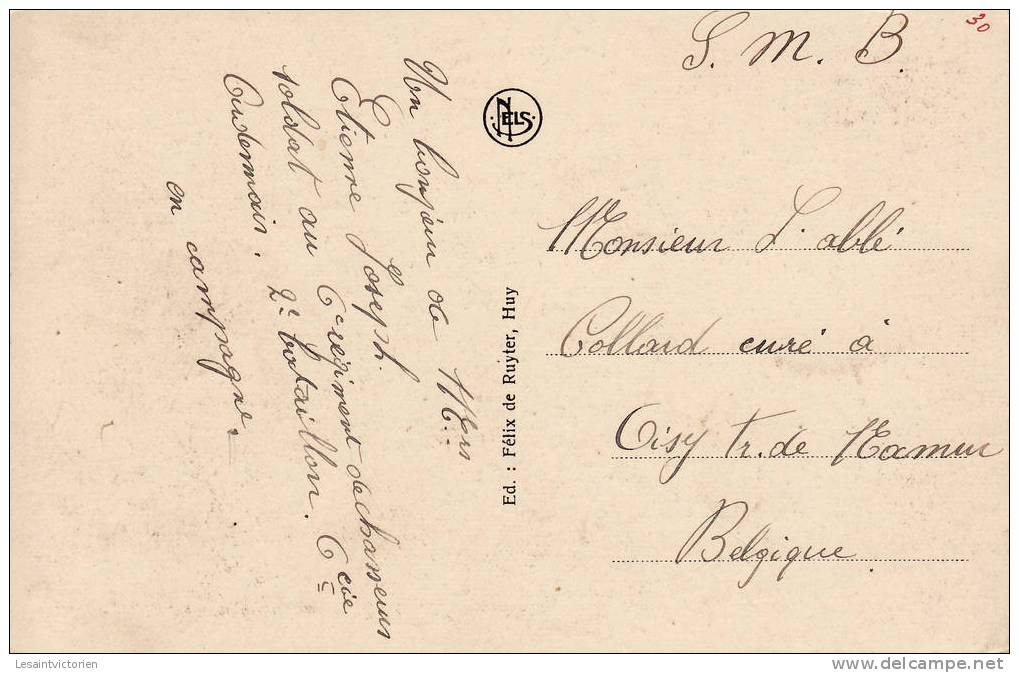 30
S. M. B.
Un bonjour de Mr
Etienne Joseph.
soldat au 6e régiment de chasseurs
2e bataillon. 6e cie
en campagne.
NELS
Ed. : Félix de Ruyter, Huy
Monsieur L'abbé
Collard curé à
Oisy Pr. de Namur
Belgique
Lesaintvictorien
delcampe.net